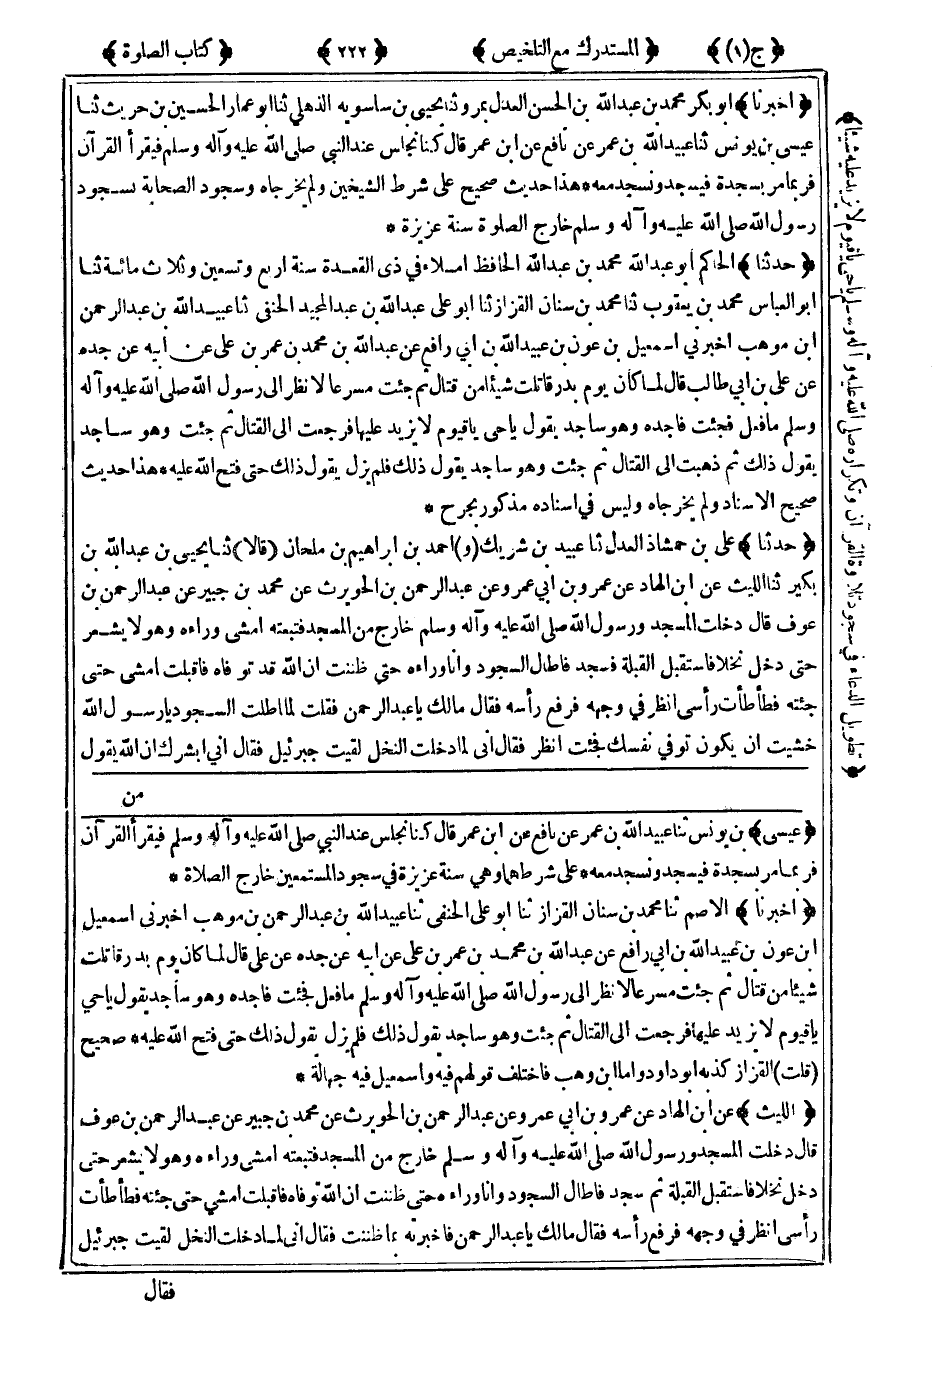 ﴿ ج(١) ﴾ ﴿ المستدرك مع التلخيص ﴾ ﴿ ٢٢٢ ﴾ ﴿ كتاب الصلوة ﴾
﴿ اخبرنا ﴾ ابو بكر محمد بن عبدالله بن الحسن العدل بمرو ثنا يحيى بن ساسويه الذهلي ثنا ابو عمار الحسين بن حريث ثنا
عيسى بن يونس ثنا عبيدالله بن عمر عن نافع عن ابن عمر قال كنا نجلس عند النبي صلى الله عليه وآله وسلم فيقرأ القرآن
فربما مر بسجدة فيسجد ونسجد معه * هذا حديث صحيح على شرط الشيخين ولم يخرجاه وسجود الصحابة بسجود
رسول الله صلى الله عليه وآله وسلم خارج الصلوة سنة عزيزة *
﴿ حدثنا ﴾ الحاكم أبو عبدالله محمد بن عبدالله الحافظ املاء في ذى القعدة سنة اربع وتسعين وثلاث مائة ثنا
ابو العباس محمد بن يعقوب ثنا محمد بن سنان القزاز ثنا ابو على عبدالله بن عبدالمجيد الحنفى ثنا عبيدالله بن عبدالرحمن
ابن موهب اخبرني اسمعيل بن عون بن عبيدالله بن أبي رافع عن عبدالله بن محمد بن عمر بن على عن ابيه عن جده
عن على بن ابي طالب قال لما كان يوم بدر قاتلت شيئا من قتال ثم جئت مسرعا لا نظر الى رسول الله صلى الله عليه وآله
وسلم ما فعل فجئت فاجده وهو ساجد يقول ياحى ياقيوم لا يزيد عليها فرجعت الى القتال ثم جئت وهو ساجد
يقول ذلك ثم ذهبت الى القتال ثم جئت وهو ساجد يقول ذلك فلم يزل يقول ذلك حتى فتح الله عليه * هذا حديث
صحيح الاسناد ولم يخرجاه وليس في اسناده مذكور بجرح *
﴿ حدثنا ﴾ على بن حمشاذ العدل ثنا عبيد بن شريك (و) احمد بن ابراهيم بن ملحان (قالا) ثنا يحيى بن عبدالله بن
بكير ثنا الليث عن ابن الهاد عن عمرو بن ابي عمرو عن عبدالرحمن بن الحويرث عن محمد بن جبير عن عبدالرحمن بن
عوف قال دخلت المسجد ورسول الله صلى الله عليه وآله وسلم خارج من المسجد فتبعته امشى وراءه وهو لا يشعر
حتى دخل نخلا فاستقبل القبلة فسجد فاطال السجود وانا وراءه حتى ظننت ان الله قد توفاه فاقبلت امشى حتى
جئته فطأطأت رأسى انظر في وجهه فرفع رأسه فقال مالك ياعبدالرحمن فقلت لما اطلت السجود يارسول الله
خشيت ان يكون توفي نفسك فجئت انظر فقال انى لما دخلت النخل لقيت جبرئيل فقال انى ابشرك ان الله يقول
من
﴿ عيسى ﴾ بن يونس ثنا عبيدالله بن عمر عن نافع عن ابن عمر قال كنا نجلس عند النبي صلى الله عليه وآله وسلم فيقرأ القرآن
فربما مر بسجدة فيسجد ونسجد معه * على شرطهما وهي سنة عزيزة في سجود المستمعين خارج الصلاة *
﴿ اخبرنا ﴾ الاصم ثنا محمد بن سنان القزاز ثنا ابو على الحنفى ثنا عبيدالله بن عبدالرحمن بن موهب اخبرنى اسمعيل
ابن عون بن عبيدالله بن ابي رافع عن عبدالله بن محمد بن عمر بن على عن ابيه عن جده عن على قال لما كان يوم بدر قاتلت
شيئا من قتال ثم جئت مسرعا لانظر الى رسول الله صلى الله عليه وآله وسلم ما فعل فجئت فاجده وهو ساجد يقول ياحي
ياقيوم لا يزيد عليها فرجعت الى القتال ثم جئت وهو ساجد يقول ذلك فلم يزل يقول ذلك حتى فتح الله عليه * صحيح
(قلت) القزاز كذبه ابو داود واما ابن وهب فاختلف قولهم فيه واسمعيل فيه جهالة *
﴿ الليث ﴾ عن ابن الهاد عن عمرو بن ابي عمرو عن عبدالرحمن بن الحويرث عن محمد بن جبير عن عبدالرحمن بن عوف
قال دخلت المسجد ورسول الله صلى الله عليه وآله وسلم خارج من المسجد فتبعته امشى وراءه وهو لا يشعر حتى
دخل نخلا فاستقبل القبلة ثم سجد فاطال السجود وانا وراءه حتى ظننت ان الله توفاه فاقبلت امشي حتى جئته فطأطأت
رأسى انظر في وجهه فرفع رأسه فقال مالك ياعبدالرحمن فاخبرته بما ظننت فقال انى لما دخلت النخل لقيت جبرئيل
فقال
﴿ تطويل الدعاء في سجود تلاوة القرآن وتكراره صلى الله عليه وآله وسلم ياحى ياقيوم لا يزيد عليه شيئا ﴾